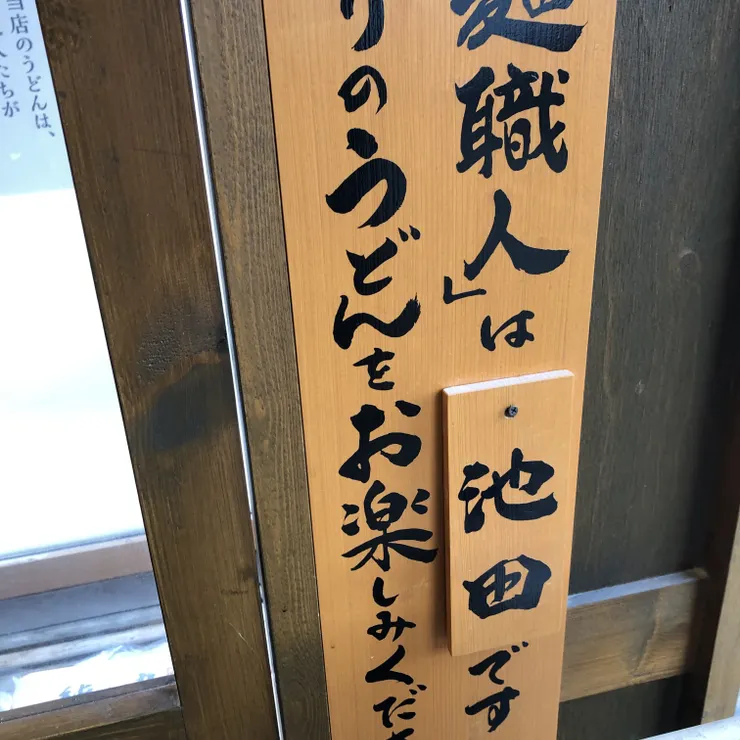 麺職人」は池田です
りのうどんをお楽しみくださ
当店のうどんは、
人たちが